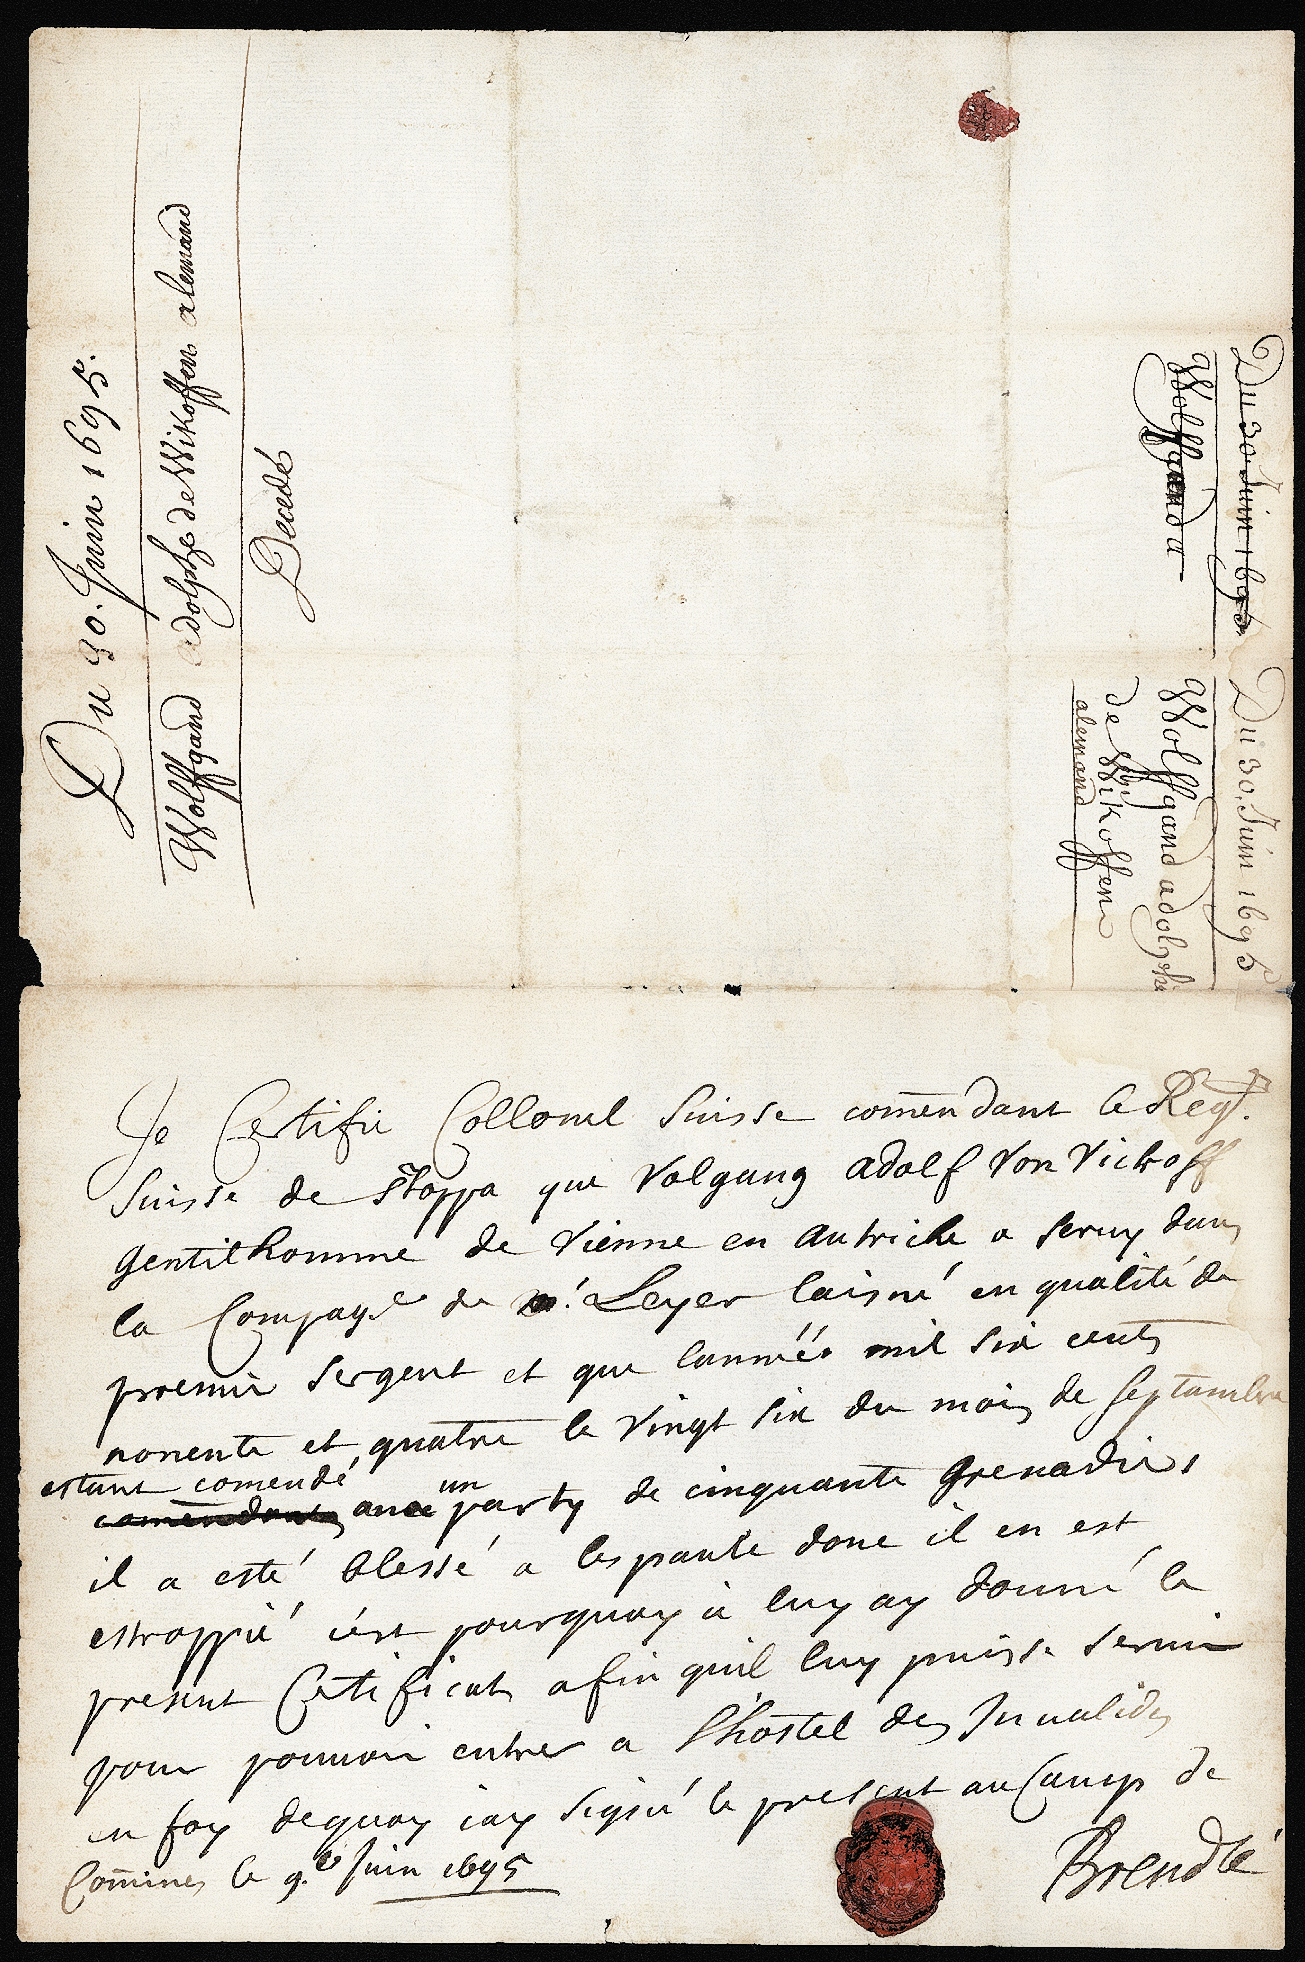 Du 30. Juin 1695.
Wolffgand adolphe de Wikoffen alemand
Decedé
Du 30. Juin 1695
Wolffgand a
Du 30. Juin 1695
Wolffgand adolphe
de Wikoffen
alemand
Je Certifie Collonel Suisse comendant le Regt.
Suisse de Stoppa que Volgang Adolf Von Vickoff
gentilhomme de Vienne en Autriche a seruy dans
la Compag.e de mr. Leyer laisné en qualité de
premie sergent et que lannéé mil six cents
nonente et quatre le Vingt six du mois de Septambre
estant comendé un
comendant auec party de cinquante grenadies
il a esté blessé a lespaule donc il en est
estroppié cést pourquoy ie luy ay donné le
present Certificat afin quil luy puisse seruir
pour pouuoir entrer a l'hostel des Inualides
en foy dequoy iay signé le present au Camp de
Comines le 9.e Juin 1695
Brendlé